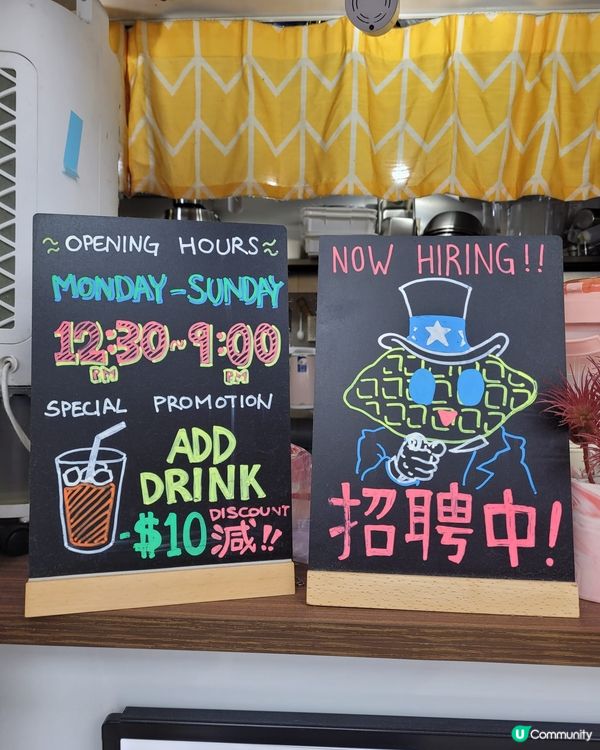 ≈ OPENING HOURS ≈
MONDAY-SUNDAY
12:30~9:00
PM PM
SPECIAL PROMOTION
ADD
DRINK
-$10 DISCOUNT
減!!
NOW HIRING!!
招聘中!
U Community